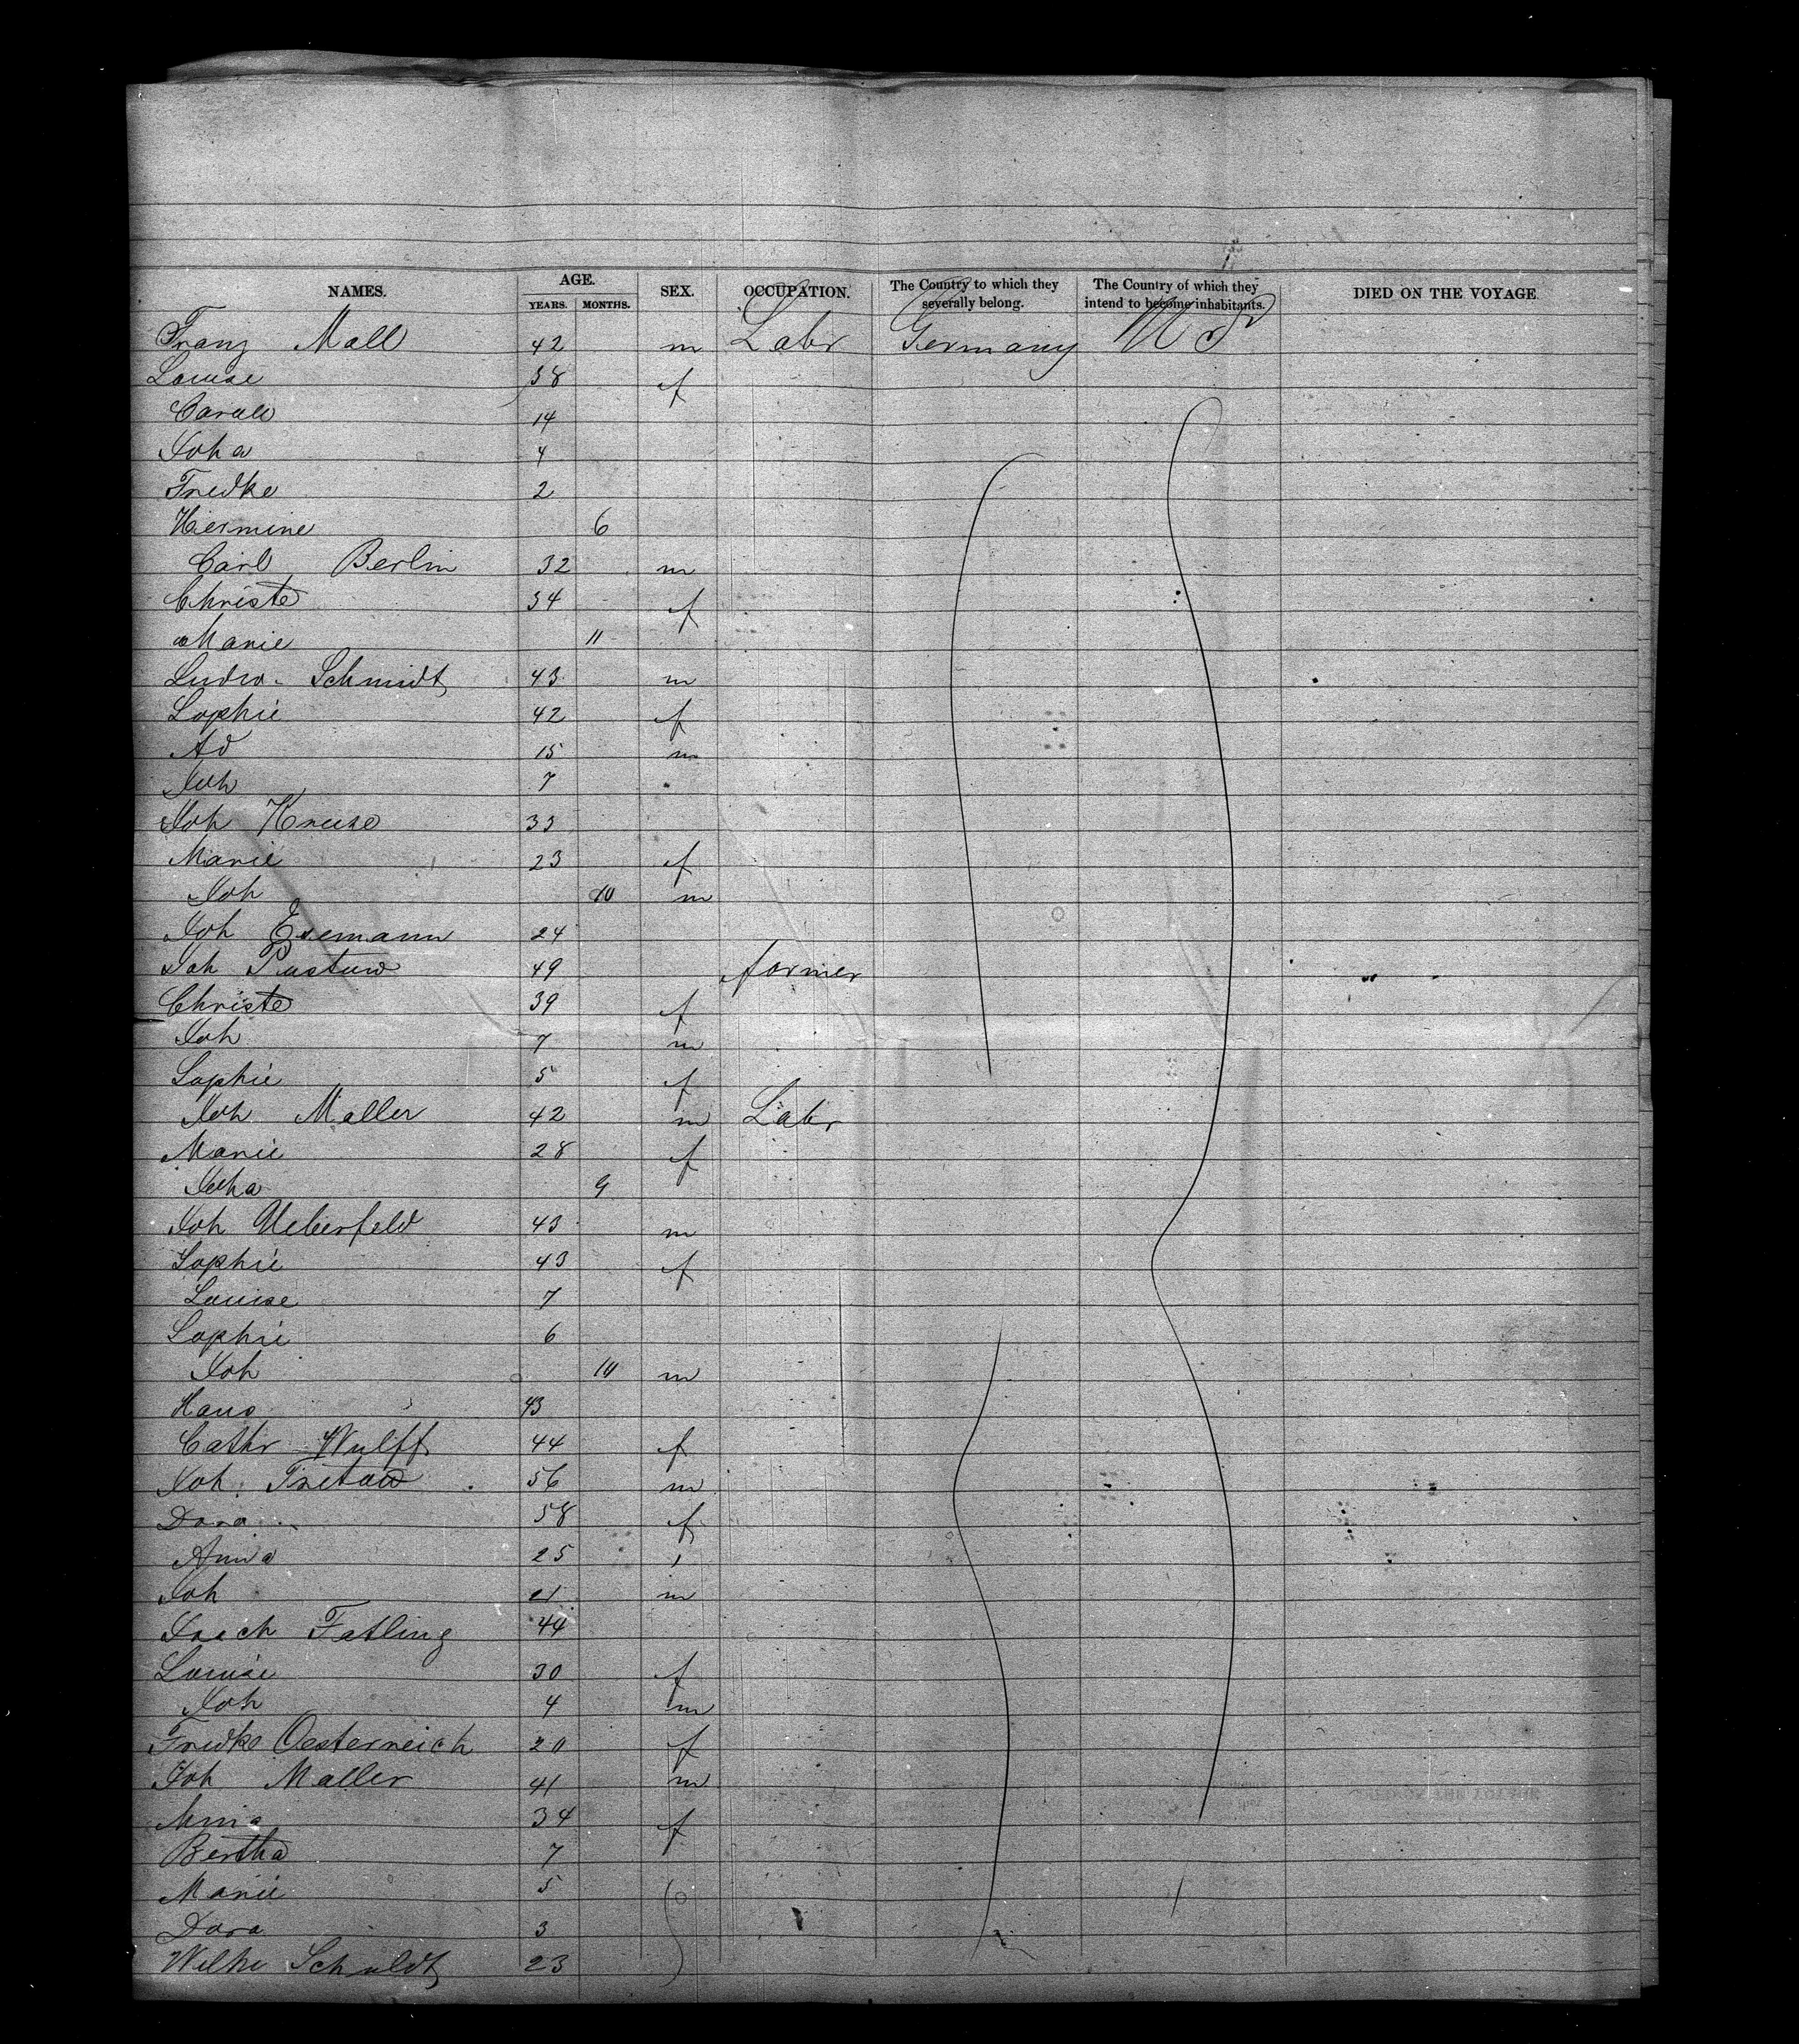 NAMES. AGE. SEX. OCCUPATION. The Country to which they severally belong. The Country of which they intend to become inhabitants. DIED ON THE VOYAGE
YEARS. MONTHS.
Franz Mall 42 m Labr Germany U S
Louise 38 f
Caroll 14
Joha 4
Fredke 2
Hermine 6
Carl Berlin 32 m
Christe 34 f
Marie 11
Ludw- Schmidt 43 m
Sophie 42 f
Ad 15 m
Joh 7
Joh Kruse 33
Marie 23 f
Joh 10 m
Joh Esemann 24
Joh Pustow 49 farmer
Christe 39 f
Joh 7 m
Sophie 5 f
Joh Moller 42 m Labr
Marie 28 f
Joha 9
Joh Ueberfeld 43 m
Sophie 43 f
Louise 7
Sophie 6
Joh 10 m
Hans 43
Cathr Wulff 44 f
Joh. Tretow 56 m
Dora 58 f
Anna 25
Joh 21 m
Fatling 44
Louise 30 f
Joh 4 m
Fredke Oesterreich 20 f
Joh Maller 41 m
34 f
Bertha 7
Marie 5
Dora 3
Wilhe Schuldt 23